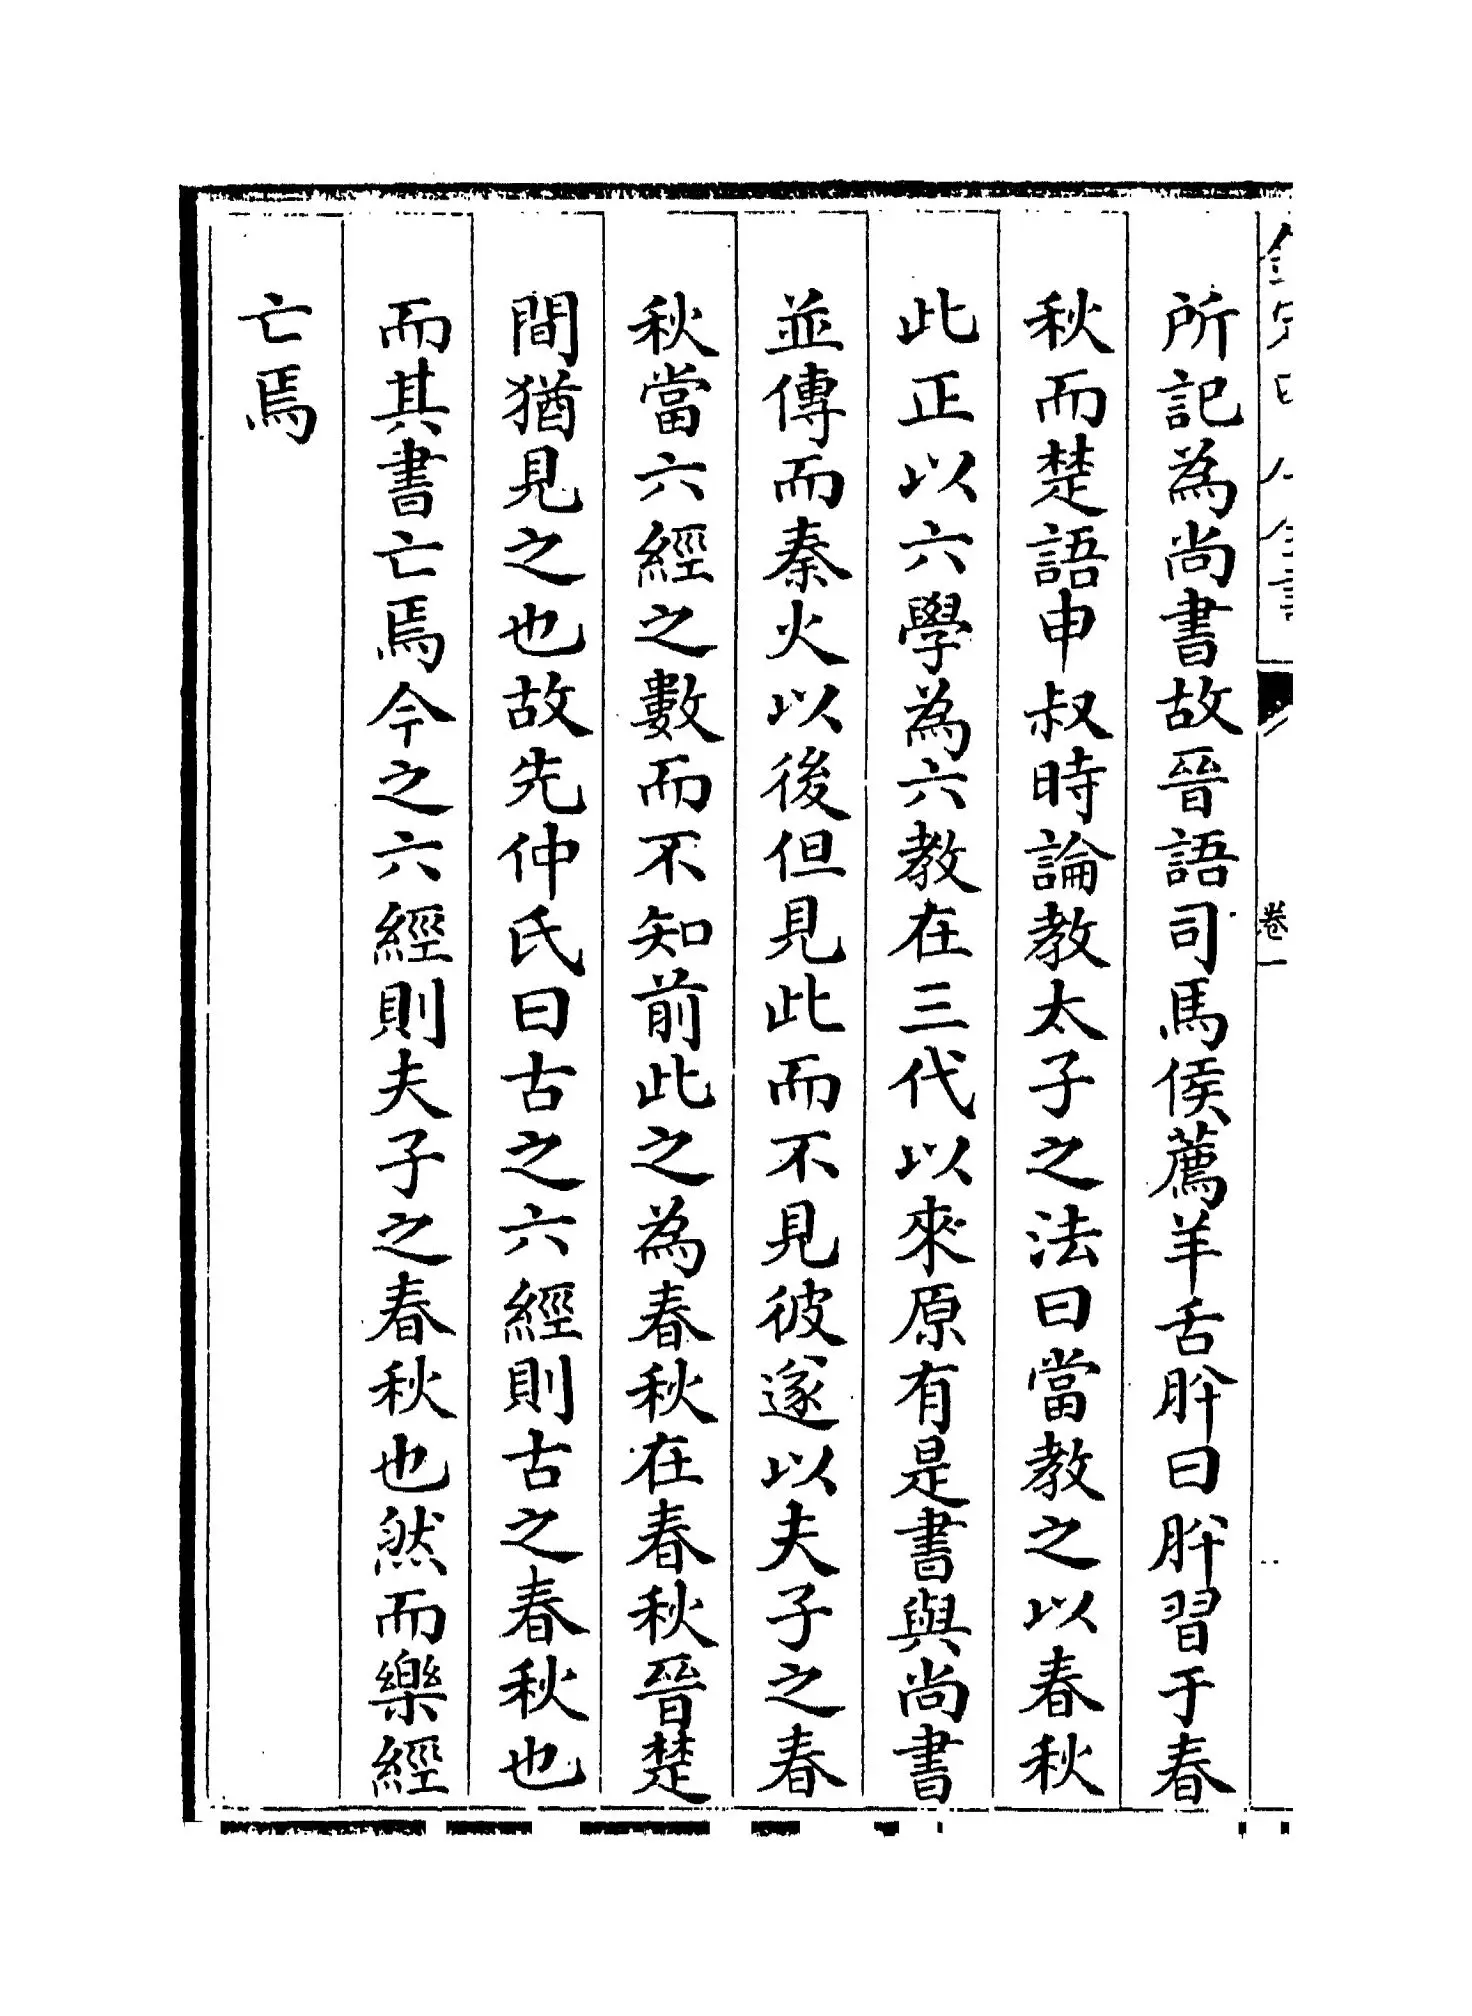 所記為尚書故晉語司馬侯薦羊舌肸曰肸習于春
秋而楚語申叔時論教太子之法曰當教之以春秋
此正以六學為六教在三代以來原有是書與尚書
並傳而秦火以後但見此而不見彼遂以夫子之春
秋當六經之數而不知前此之為春秋在春秋晉楚
間猶見之也故先仲氏曰古之六經則古之春秋也
而其書亡焉今之六經則夫子之春秋也然而樂經
亡焉
卷一